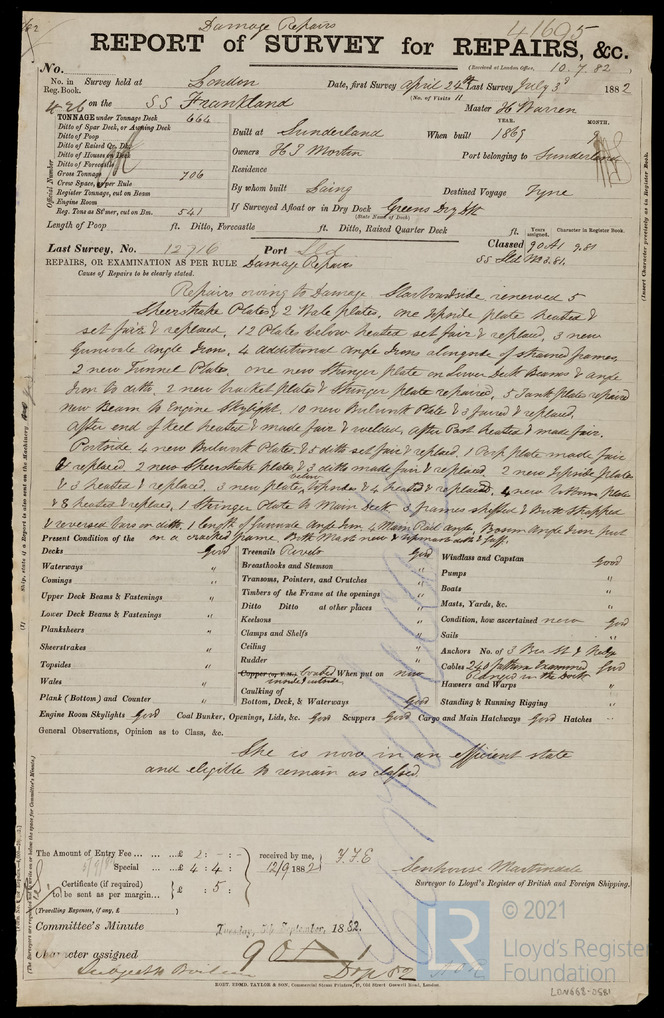 Damage Repairs 41695
REPORT of SURVEY for REPAIRS, &c.
No. (Received at London Office, 10.7.82
No. in Reg. Book. Survey held at London Date, first Survey April 24th Last Survey July 3d 1882
(No. of Visits 11
426 on the SS Frankland Master H Warren
TONNAGE under Tonnage Deck 664
Ditto of Spar Deck, or Awning Deck
Ditto of Poop
Ditto of Raised Qr. Dk.
Ditto of Houses on Deck
Ditto of Forecastle
Gross Tonnage 706
Crew Space, as per Rule
Register Tonnage, cut on Beam
Engine Room
Reg. Tons as St'mer, cut on Bm. 541
Official Number
YEAR. MONTH.
Built at Sunderland When built 1869 9
Owners H T Morton Port belonging to Sunderland
Residence
By whom built Laing Destined Voyage Tyne
If Surveyed Afloat or in Dry Dock Greens Dry Dk
(State Name of Dock)
Length of Poop ft. Ditto, Forecastle ft. Ditto, Raised Quarter Deck ft. Years assigned. Character in Register Book.
Last Survey, No. 12716 Port Sld Classed 90A1 9.81
REPAIRS, OR EXAMINATION AS PER RULE Damage Repairs SS Sld No3.81.
Cause of Repairs to be clearly stated.
Repairs owing to Damage Starboardside renewed 5
Sheerstrake Plates & 2 Wale plates. one Topside plate heated &
set fair & replaced, 12 Plates below heated set fair & replaced, 3 new
Gunwale Angle Irons, 4 additional Angle Irons alongside of strained frames,
2 new Tunnel Plates. one new Stringer plate on Lower Deck Beams & angle
Iron to ditto, 2 new bracket plates & Stringer plate repaired, 5 Tank plates repaired
New Beam to Engine Skylight. 10 new Bulwark Plate & 3 faired & replaced.
After end of Keel heated & made fair & welded, after Post heated & made fair.
Portside 4 new Bulwark Plates & 5 ditto set fair & replaced. 1 Poop plate made fair
& replaced 2 new Sheerstrake plates & 3 ditto made fair & replaced 2 new Topside plates
& 3 heated & replaced. 3 new plates below Topsides & 4 heated & replaced, 4 new bottom plates
& 8 heated & replaced, 1 Stringer Plate to Main Deck 3 frames shifted & Butt Strapped
& reversed bars on ditto, 1 length of Gunwale Angle Iron, 4 Main Rail angle, Bosom Angle Iron put
on a cracked frame, Both Masts new &
Present Condition of the
Decks Good
Waterways "
Comings "
Upper Deck Beams & Fastenings "
Lower Deck Beams & Fastenings "
Planksheers "
Sheerstrakes "
Topsides "
Wales "
Plank (Bottom) and Counter "
Treenails Rivets Good
Breasthooks and Stemson "
Transoms, Pointers, and Crutches "
Timbers of the Frame at the openings "
Ditto Ditto at other places "
Keelsons "
Clamps and Shelfs "
Ceiling "
Rudder "
Copper (or Y.M.) Coated When put on new
inside & outside
Caulking of
Bottom, Deck, & Waterways Good
Windlass and Capstan Good
Pumps "
Boats "
Masts, Yards, &c. "
Condition, how ascertained new Good
Sails "
Anchors No. of 3 Bra St & Kedge
Cables 240 fathom Examined Good
Hawsers and Warps "
Standing & Running Rigging "
Engine Room Skylights Good Coal Bunker, Openings, Lids, &c. Good Scuppers Good Cargo and Main Hatchways Good Hatches "
General Observations, Opinion as to Class, &c.
She is now in an efficient state
and eligible to remain as classed.
The Amount of Entry Fee ... £ 2 : - : -
Special £ 4 : 4 :
Certificate (if required) to be sent as per margin £ : 5 :
(Travelling Expenses, if any, £ )
received by me, F.F.E
12/9 1882
Senhouse Martindale
Surveyor to Lloyd's Register of British and Foreign Shipping.
Committee's Minute Tuesday, 5th September, 1882.
Character assigned 90 A 1
ROBT. EDMD. TAYLOR & SON, Commercial Steam Printers, 19, Old Street Goswell Road, London.
LR © 2021
Lloyd's Register
Foundation
LON668-0581